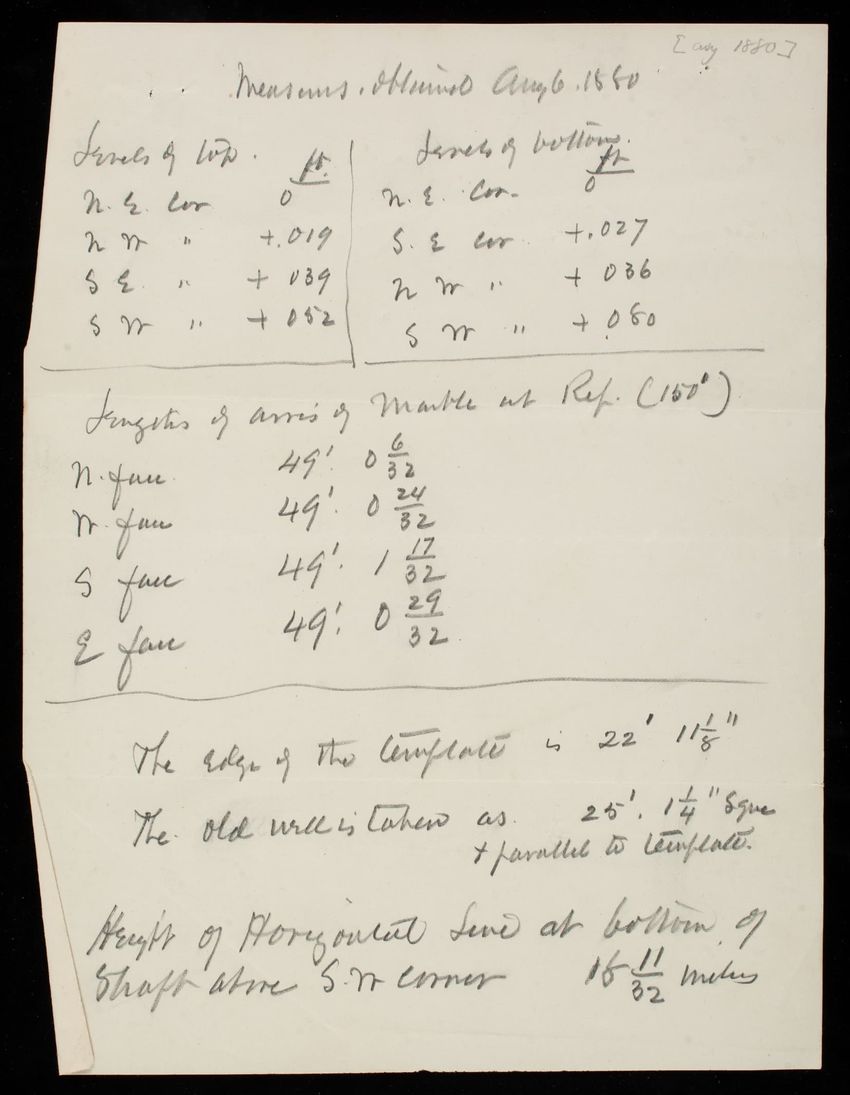 [Aug 1880]
Measures obtained Aug 6. 1880
Levels of top.
ft.
N. E. Cor 0
N W " +.019
S E. " + 039
S W " + 052
Levels of bottom.
ft
N. E. Cor. 0
S. E Cor +.027
N W " + 036
S W " + .080
Lengths of arris of Marble at Ref. (150')
N. face 49'. 0 6/32
W. face 49'. 0 24/32
S face 49'. 1 17/32
E face 49'. 0 29/32
The Edge of the template is 22' 11 1/8"
The old well is taken as 25'. 1 1/4" Sque
+ parallel to template.
Height of Horizontal Line at bottom of
Shaft above S. W Corner 11/32 inches